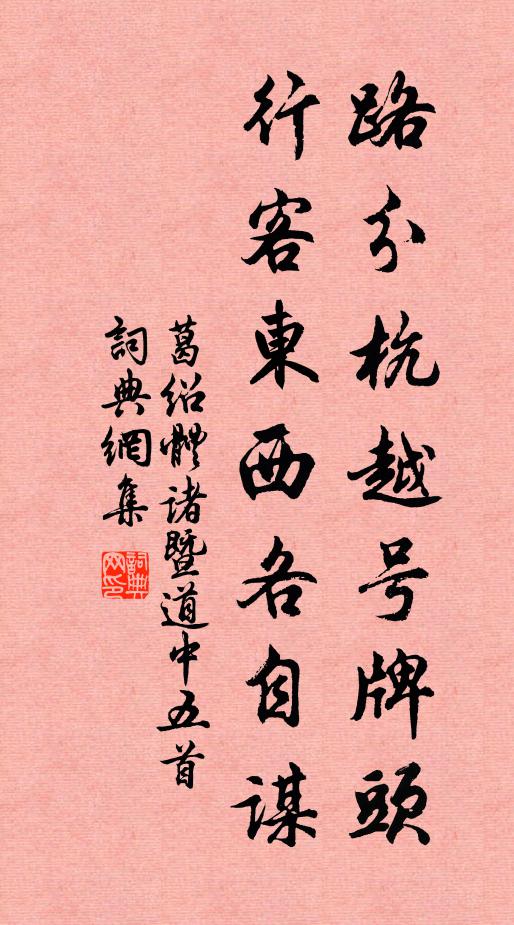 路分杭越号牌頭
行客東西各自謀
葛紹體諸暨道中五首
詞典網集
詞典网印